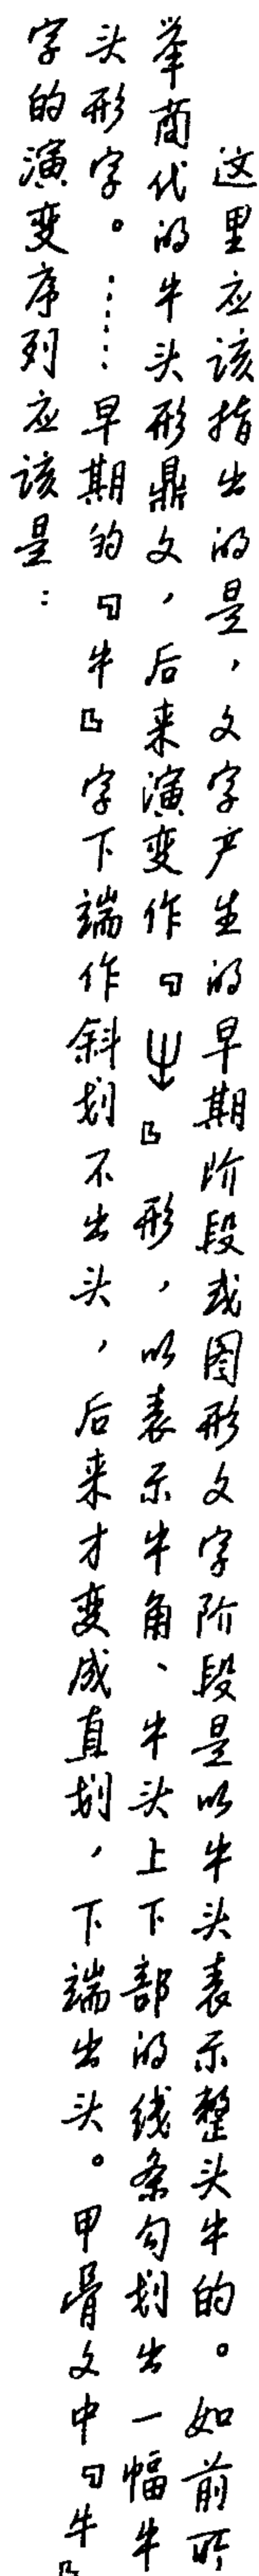 这里应该指出的是，文字产生的早期阶段或图形文字阶段是以牛头表示整头牛的。如前所
举商代的牛头形鼎文，后来演变作『』形，以表示牛角、牛头上下部的线条勾划出一幅牛
头形字。……早期的『牛』字下端作斜划不出头，后来才变成直划，下端出头。甲骨文中『牛』
字的演变序列应该是：